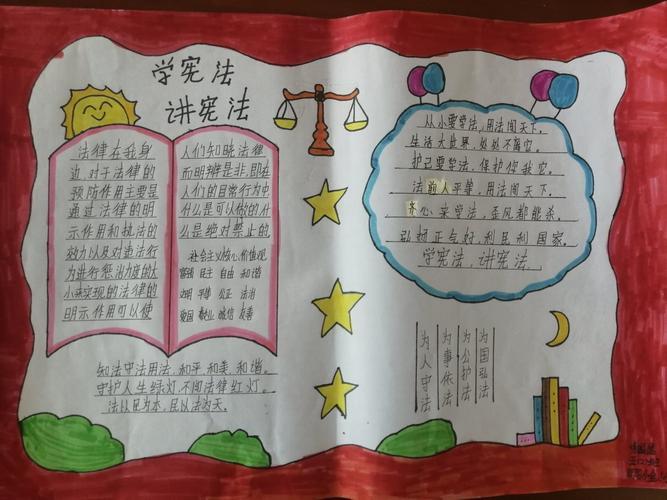 学宪法
讲宪法
法律在我身
边,对于法律的
预防作用主要是
通过法律的明
示作用和执法的
效力以及对违法行
为进行惩治力度的大
小来实现的法律的
明示作用可以使
人们知晓法律
而明辨是非,即在
人们的日常行为中
什么是可以做的什
么是绝对禁止的
社会主义核心价值观
富强 民主 自由 和谐
文明 平等 公正 法治
爱国 敬业 诚信 友善
知法守法用法,和平和美,和谐。
守护人生绿灯,不闯法律红灯。
法以民为本,民以法为天。
从小要学法,用法闯天下。
生活大世界,处处不离它。
护己要学法,保护你我它。
法前人平等,用法闯天下。
齐心来学法,歪风都能杀。
弘扬正气好,利民利国家。
学宪法,讲宪法
为人守法
为事依法
为公护法
为国弘法